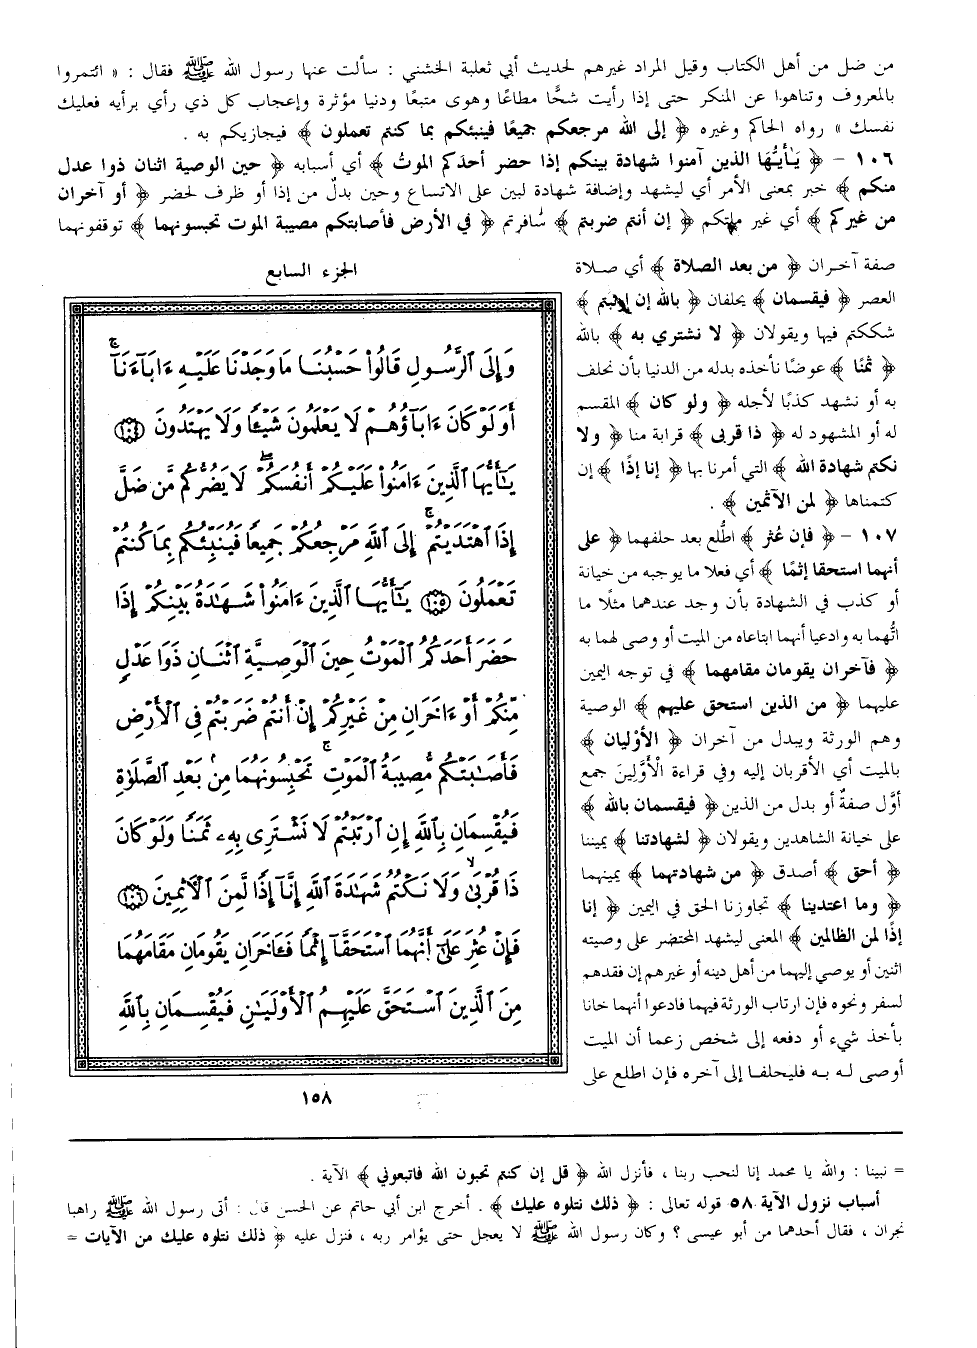 من ضل من أهل الكتاب وقيل المراد غيرهم لحديث أبي ثعلبة الخشني : سألت عنها رسول الله ﷺ فقال : « ائتمروا
بالمعروف وتناهوا عن المنكر حتى إذا رأيت شحًّا مطاعًا وهوى متبعًا ودنيا مؤثرة وإعجاب كل ذي رأي برأيه فعليك
نفسك » رواه الحاكم وغيره ﴿ إلى الله مرجعكم جميعًا فينبئكم بما كنتم تعملون ﴾ فيجازيكم به .
١٠٦ - ﴿ يَٰأيُّهَا الذين آمنوا شهادة بينكم إذا حضر أحدَكم الموتُ ﴾ أي أسبابه ﴿ حين الوصية اثنان ذوا عدل
منكم ﴾ خبر بمعنى الأمر أي ليشهد وإضافة شهادة لبين على الاتساع وحين بدلٌ من إذا أو ظرف لحضر ﴿ أو آخران
من غيركم ﴾ أي غير ملتكم ﴿ إن أنتم ضربتم ﴾ سافرتم ﴿ في الأرض فأصابتكم مصيبة الموت تحبسونهما ﴾ توقفونهما
صفة آخران ﴿ من بعد الصلاة ﴾ أي صلاة
العصر ﴿ فيقسمان ﴾ يحلفان ﴿ بالله إن ارتبتم ﴾
شككتم فيها ويقولان ﴿ لا نشتري به ﴾ بالله
﴿ ثمنًا ﴾ عوضًا نأخذه بدله من الدنيا بأن نحلف
به أو نشهد كذبًا لأجله ﴿ ولو كان ﴾ المقسم
له أو المشهود له ﴿ ذا قربى ﴾ قرابة منا ﴿ ولا
نكتم شهادة الله ﴾ التي أمرنا بها ﴿ إنا إذًا ﴾ إن
كتمناها ﴿ لمن الآثمين ﴾ .
١٠٧ - ﴿ فإن عُثر ﴾ اطُّلع بعد حلفهما ﴿ على
أنهما استحقا إثمًا ﴾ أي فعلا ما يوجبه من خيانة
أو كذب في الشهادة بأن وجد عندهما مثلًا ما
اتُّهما به وادعيا أنهما ابتاعاه من الميت أو وصى لهما به
﴿ فآخران يقومان مقامهما ﴾ في توجه اليمين
عليهما ﴿ من الذين استحق عليهم ﴾ الوصية
وهم الورثة ويبدل من آخران ﴿ الأوْليان ﴾
بالميت أي الأقربان إليه وفي قراءة الْأَوَّلِينَ جمع
أوّل صفةٌ أو بدل من الذين ﴿ فيقسمان بالله ﴾
على خيانة الشاهدين ويقولان ﴿ لشهادتنا ﴾ يميننا
﴿ أحق ﴾ أصدق ﴿ من شهادتهما ﴾ يمينهما
﴿ وما اعتدينا ﴾ تجاوزنا الحق في اليمين ﴿ إنا
إذًا لمن الظالمين ﴾ المعنى ليشهد المحتضر على وصيته
اثنين أو يوصي إليهما من أهل دينه أو غيرهم إن فقدهم
لسفر ونحوه فإن ارتاب الورثة فيهما فادعوا أنهما خانا
بأخذ شيء أو دفعه إلى شخص زعما أن الميت
أوصى له به فليحلفا إلى آخره فإن اطلع على
الجزء السابع
وَإِلَى ٱلرَّسُولِ قَالُواْ حَسْبُنَا مَا وَجَدْنَا عَلَيْهِ ءَابَآءَنَآ ۚ
أَوَلَوْ كَانَ ءَابَآؤُهُمْ لَا يَعْلَمُونَ شَيْـًٔا وَلَا يَهْتَدُونَ ﴿١٠٤﴾
يَـٰٓأَيُّهَا ٱلَّذِينَ ءَامَنُواْ عَلَيْكُمْ أَنفُسَكُمْ ۖ لَا يَضُرُّكُم مَّن ضَلَّ
إِذَا ٱهْتَدَيْتُمْ ۚ إِلَى ٱللَّهِ مَرْجِعُكُمْ جَمِيعًا فَيُنَبِّئُكُم بِمَا كُنتُمْ
تَعْمَلُونَ ﴿١٠٥﴾ يَـٰٓأَيُّهَا ٱلَّذِينَ ءَامَنُواْ شَهَـٰدَةُ بَيْنِكُمْ إِذَا
حَضَرَ أَحَدَكُمُ ٱلْمَوْتُ حِينَ ٱلْوَصِيَّةِ ٱثْنَانِ ذَوَا عَدْلٍ
مِّنكُمْ أَوْ ءَاخَرَانِ مِنْ غَيْرِكُمْ إِنْ أَنتُمْ ضَرَبْتُمْ فِى ٱلْأَرْضِ
فَأَصَـٰبَتْكُم مُّصِيبَةُ ٱلْمَوْتِ ۚ تَحْبِسُونَهُمَا مِنۢ بَعْدِ ٱلصَّلَوٰةِ
فَيُقْسِمَانِ بِٱللَّهِ إِنِ ٱرْتَبْتُمْ لَا نَشْتَرِى بِهِۦ ثَمَنًا وَلَوْ كَانَ
ذَا قُرْبَىٰ ۙ وَلَا نَكْتُمُ شَهَـٰدَةَ ٱللَّهِ إِنَّآ إِذًا لَّمِنَ ٱلْـَٔاثِمِينَ ﴿١٠٦﴾
فَإِنْ عُثِرَ عَلَىٰٓ أَنَّهُمَا ٱسْتَحَقَّآ إِثْمًا فَـَٔاخَرَانِ يَقُومَانِ مَقَامَهُمَا
مِنَ ٱلَّذِينَ ٱسْتَحَقَّ عَلَيْهِمُ ٱلْأَوْلَيَـٰنِ فَيُقْسِمَانِ بِٱللَّهِ
١٥٨
= نبينا : والله يا محمد إنا لنحب ربنا ، فأنزل الله ﴿ قل إن كنتم تحبون الله فاتبعوني ﴾ الآية .
أسباب نزول الآية ٥٨ قوله تعالى : ﴿ ذلك نتلوه عليك ﴾ . أخرج ابن أبي حاتم عن الحسن قال : أتى رسول الله ﷺ راهبا
نجران ، فقال أحدهما من أبو عيسى ؟ وكان رسول الله ﷺ لا يعجل حتى يؤامر ربه ، فنزل عليه ﴿ ذلك نتلوه عليك من الآيات =